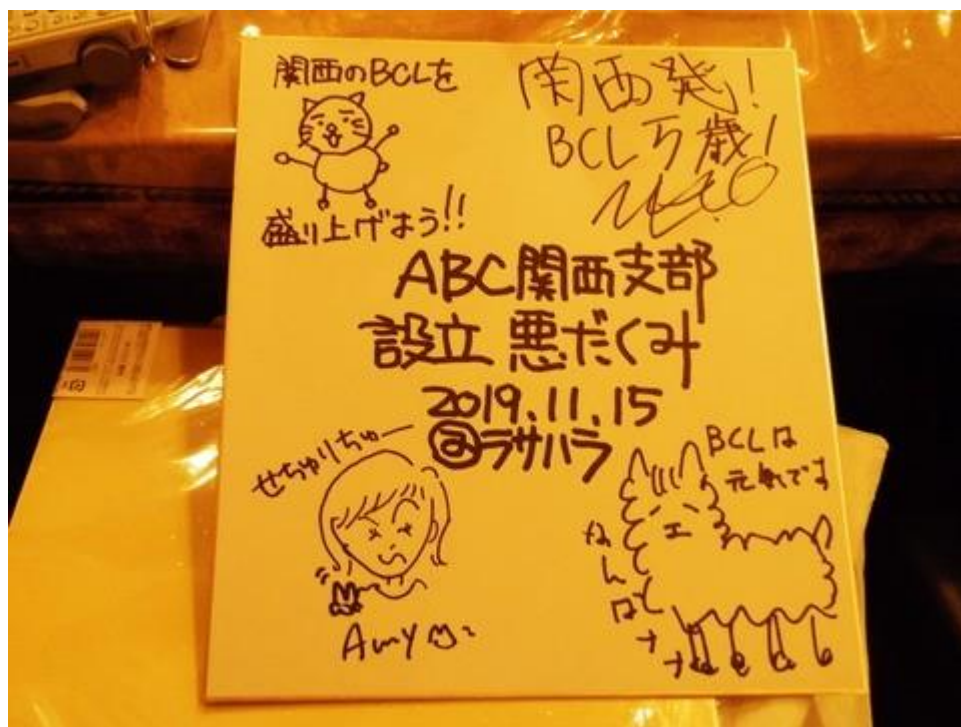 関西のBCLを
盛り上げよう!!
関西発!
BCL万歳!
ABC関西支部
設立 悪だくみ
2019.11.15
@ラサハラ
せちゅりちゅー
Amy
BCLは
元気です